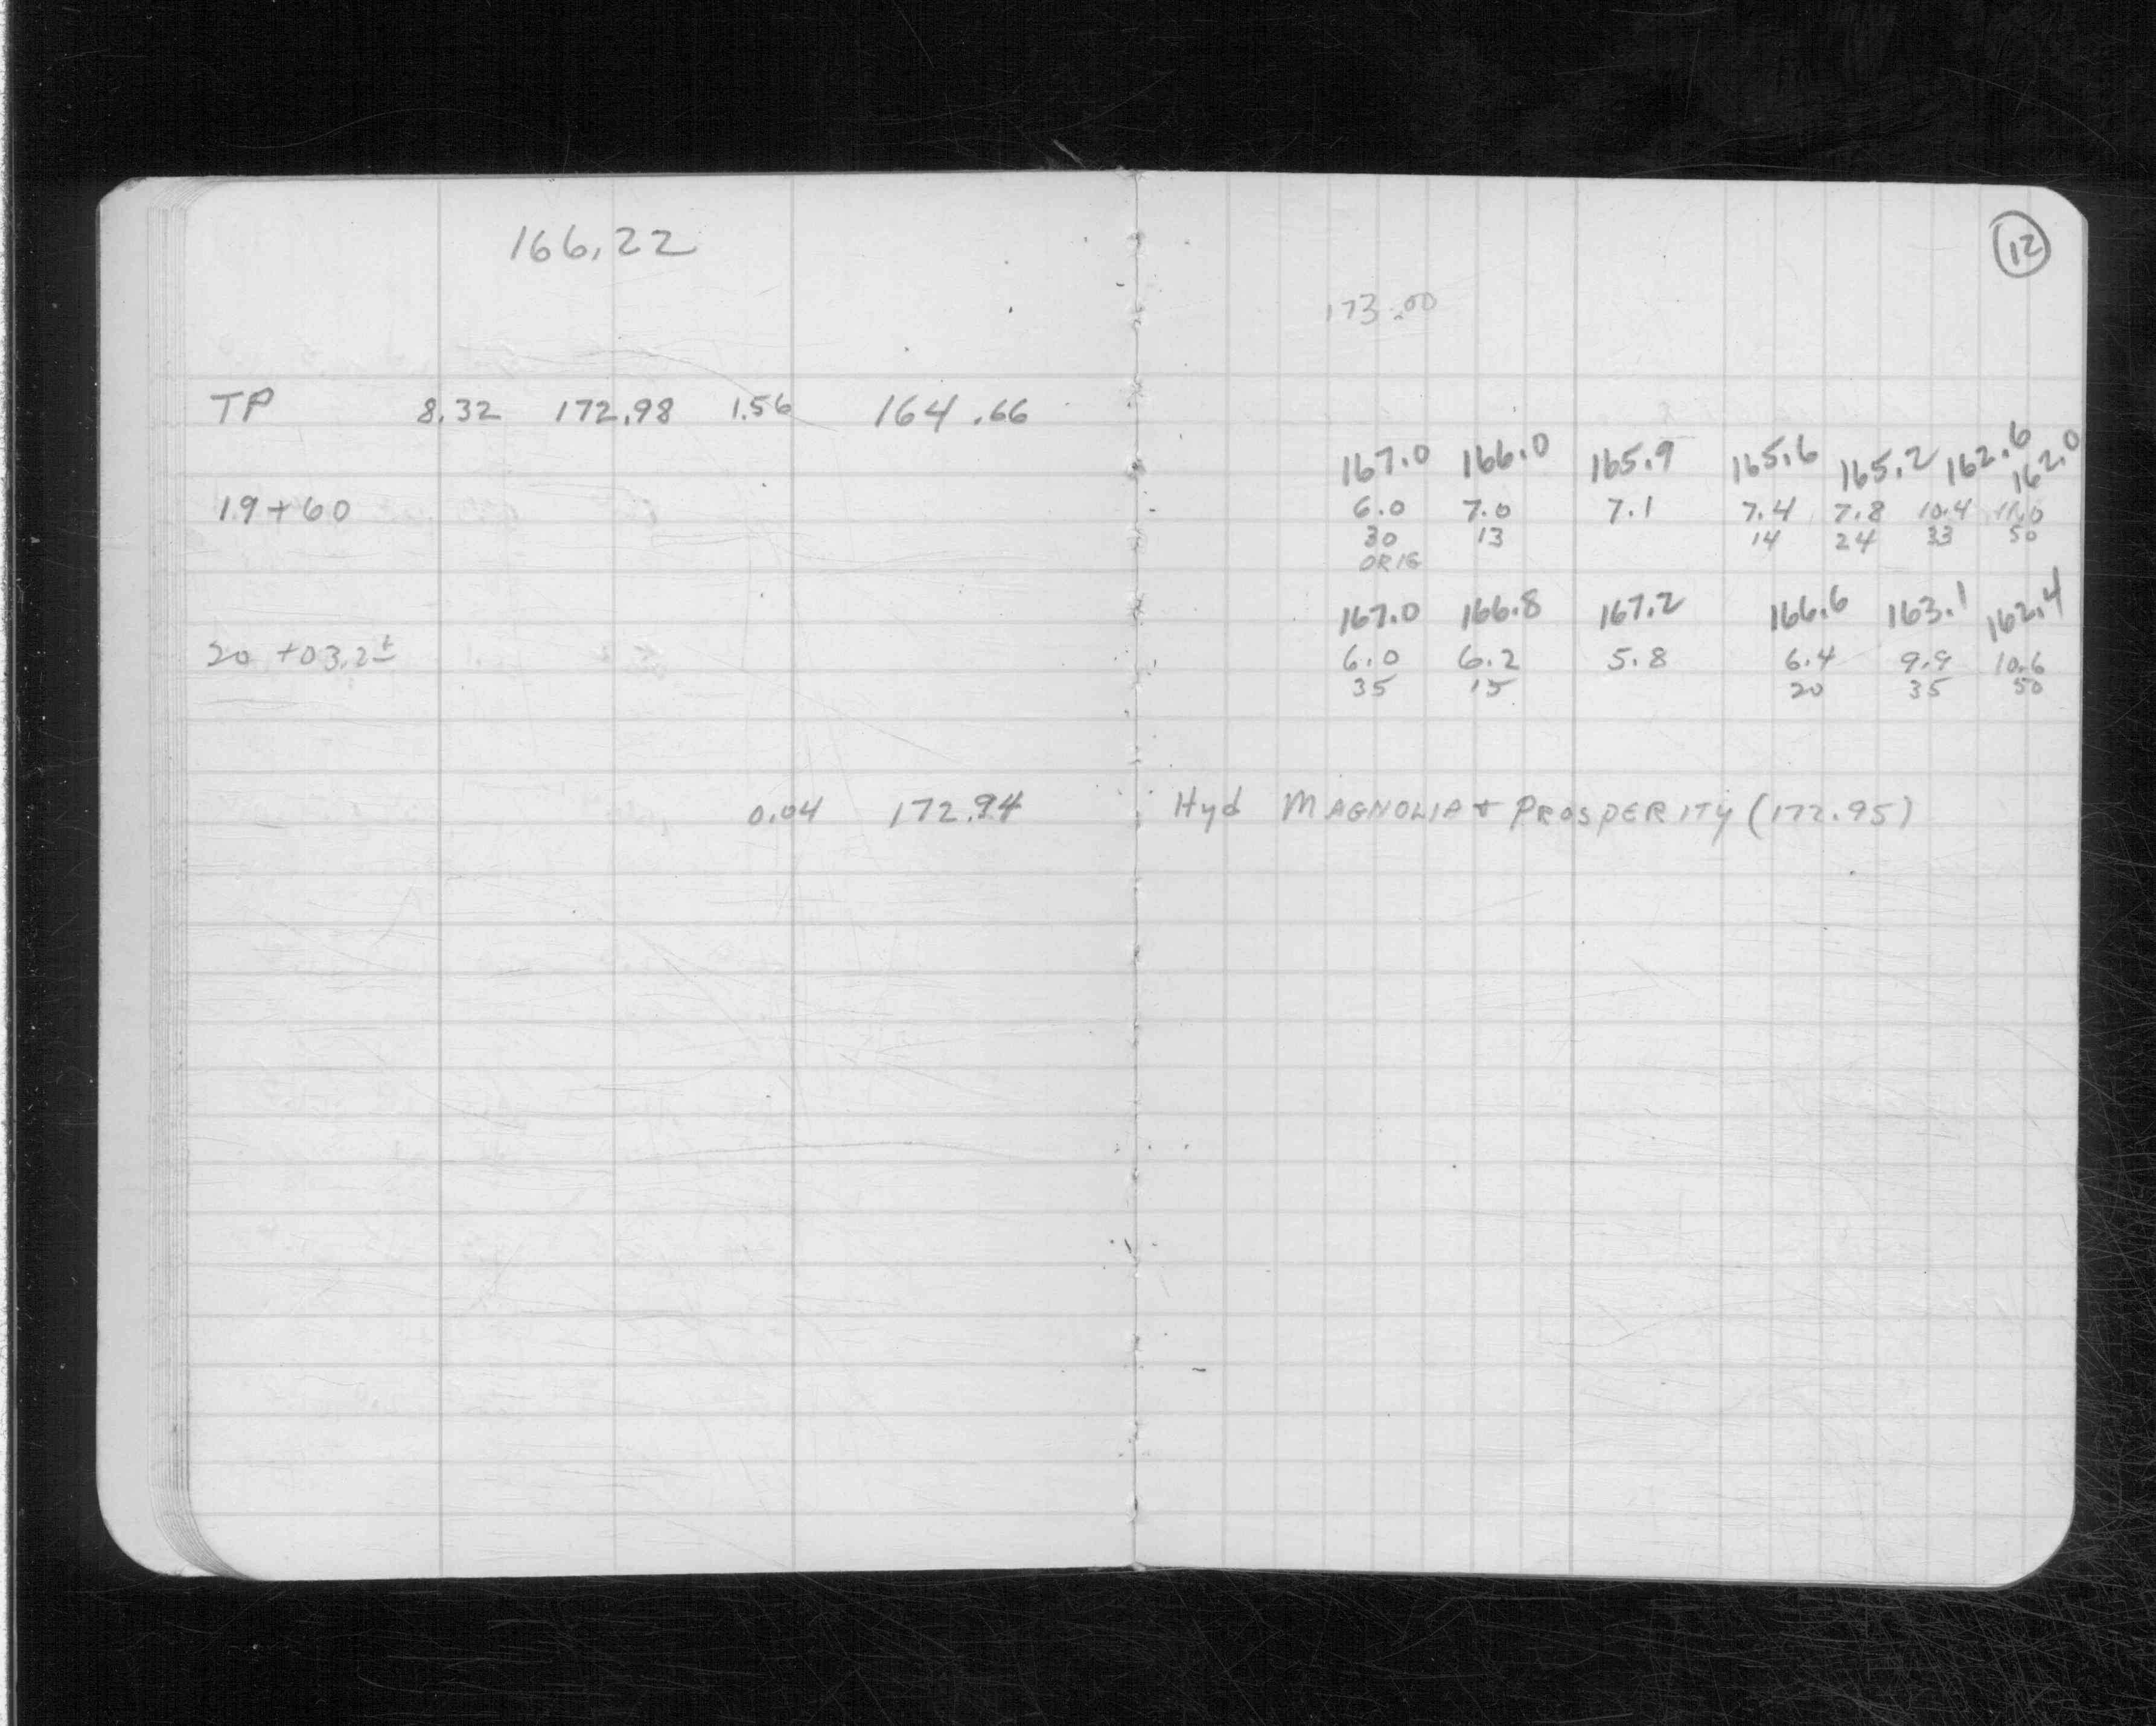 166.22
TP 8.32 172.98 1.56 164.66
19+60
20 +03.2±
0.04 172.94
12
173.00
167.0 166.0 165.9 165.6 165.2 162.6 162.0
6.0 7.0 7.1 7.4 7.8 10.4 11.0
30 13 14 24 33 50
ORIG
167.0 166.8 167.2 166.6 163.1 162.4
6.0 6.2 5.8 6.4 9.9 10.6
35 15 20 35 50
Hyd MAGNOLIA & PROSPERITY (172.95)